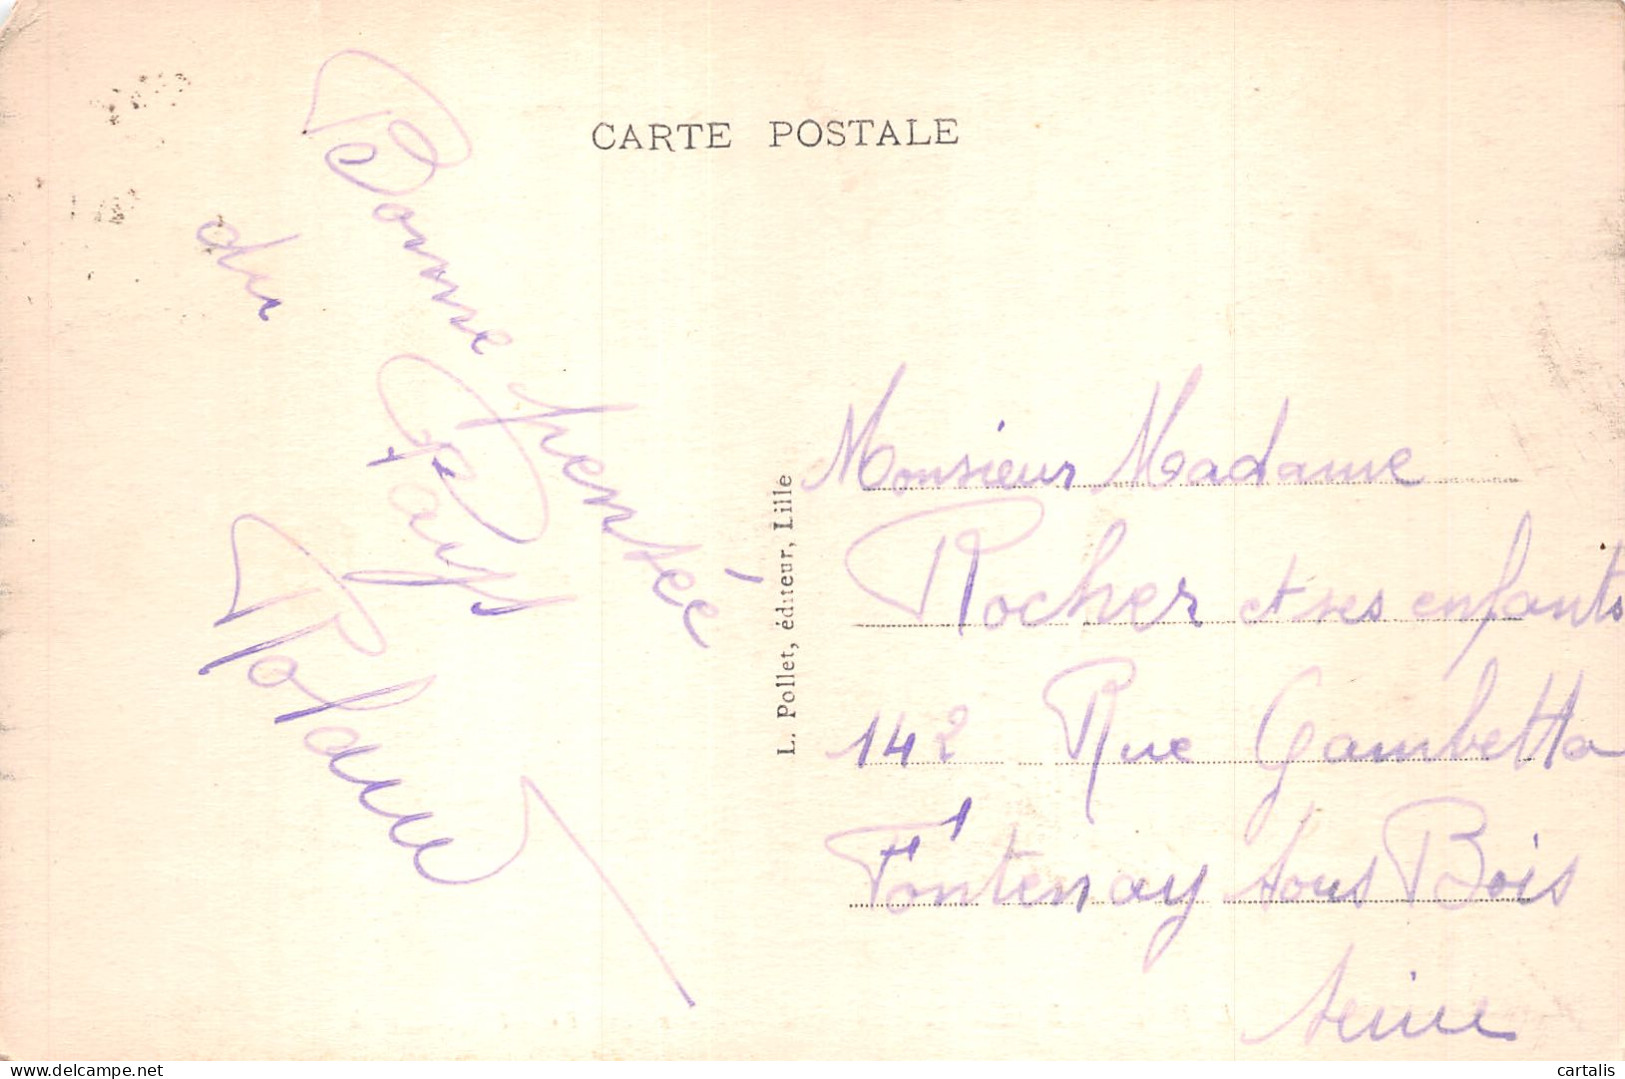 CARTE POSTALE
Bonne pensée
du Pays
Roland
L. Pollet, éditeur, Lille
Monsieur Madame
Rocher et ses enfants
142 Rue Gambetta
Fontenay sous Bois
Seine
cartalis